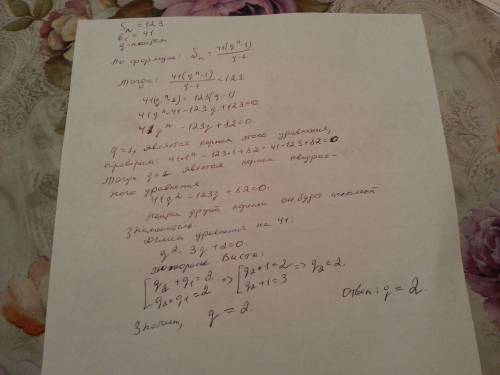 Sₙ = 123.
b₁ = 41
q - найти
По формуле: Sₙ = 41(qⁿ-1)/(q-1)
Тогда: 41(qⁿ-1)/(q-1) = 123
41(qⁿ-1) = 123(q-1)
41qⁿ-41-123q+123=0.
41qⁿ-123q+82=0.
q=1, является корнем этого уравнения,
проверим: 41·1ⁿ-123·1+82=41-123+82=0
Тогда q=1 является корнем квадрат-
ного уравнения
41q²-123q+82=0.
Найдя другой корень он будет искомый
Знаменатель
Делим уравнение на 41:
q²-3q+2=0.
По теореме Виета:
[q₂+q₁=3 => [q₂·1=2 => q₂=2.
[q₂·q₁=2 [q₂+1=3
Значит, q=2.
Ответ: q=2.